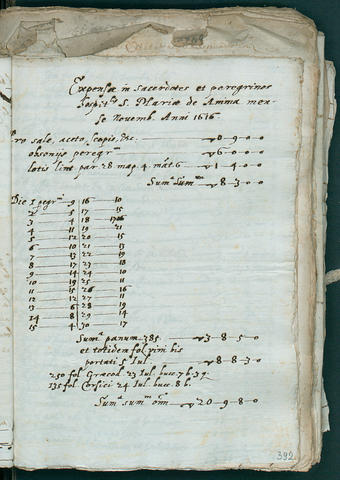 Expensæ in sacerdotes et peregrinos
Hospit. S. Mariæ de Anima men-
se Novemb. Anni 1616
Pro sale, aceto, scopis, &c. 0 9 0 0
obsonijs peregr. 6 0 0 0
lotis lint par. 28 map. 4. mât. 6 1 4 0 0
Sumª Sum 8 3 0 0
Die 1 pegr. 9 16 10
2 5 17 15
3 4 18
4 11 19 21
5 12 20 15
6 10 21 13
7 13 22 19
8 17 23 18
9 14 24 10
10 19 25
11 15 26 16
12 12 27 16
13 6 28
14 8 29
15 4 30 17
Sumª panum 385 3 8 5 0
et totidem fol. vini bis
portati 5 Iul. 8 8 3 0
250 fol Græcod 23 Iul. bucc. 7 b. 39
135 fol Corsici 24 Iul. bucc. 8 b.
Sumª sum 20 9 8 0
392